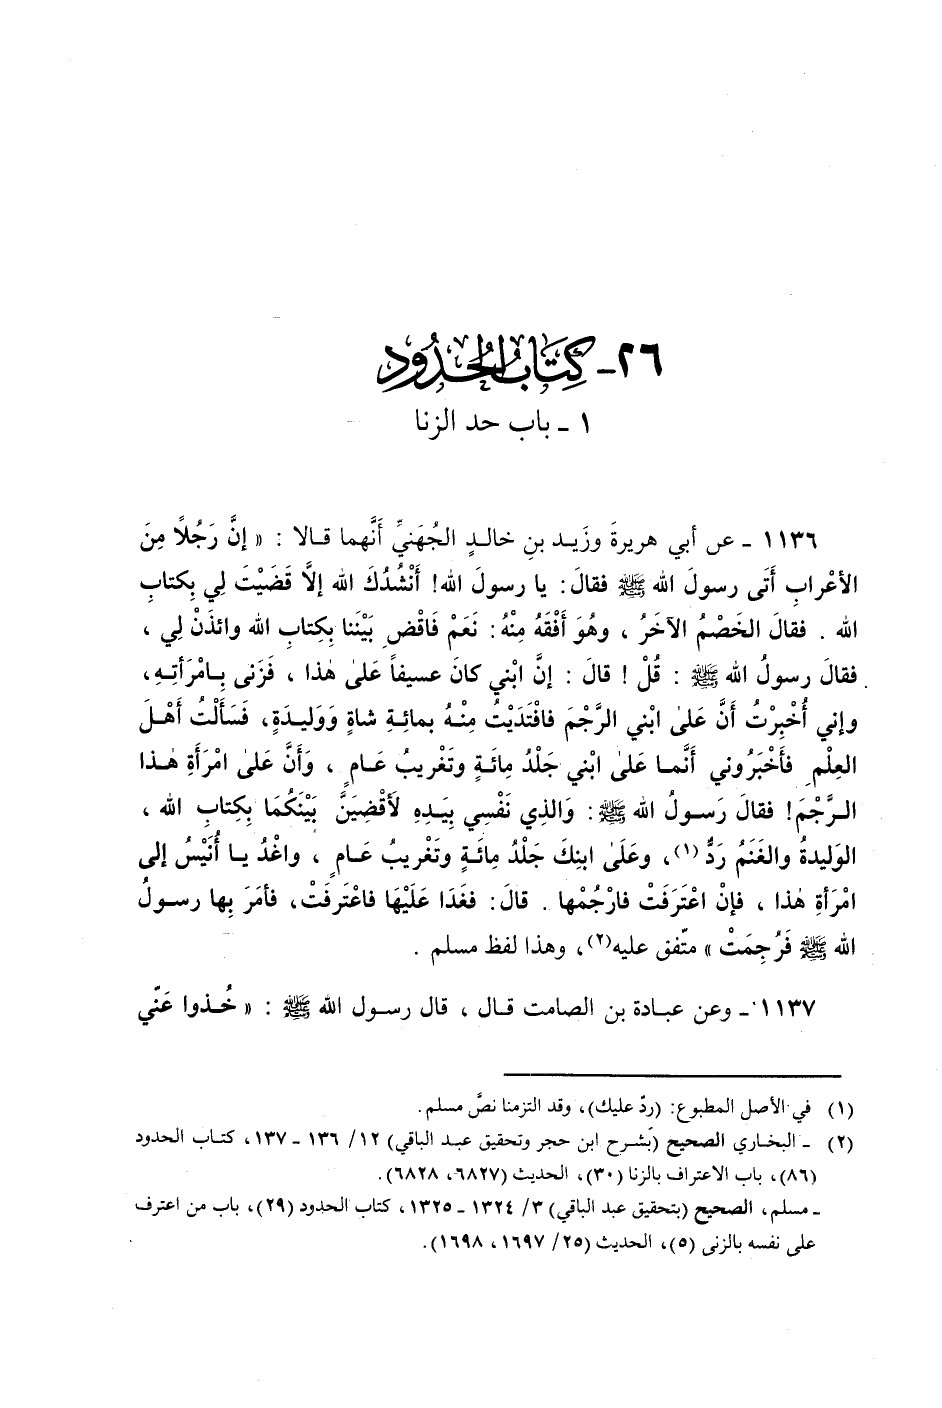 ٢٦- كِتَابُ الحُدُودِ
١ - باب حد الزنا
١١٣٦ - عن أبي هريرةَ وزَيد بنِ خالدٍ الجُهَنيِّ أَنَّهما قالا : « إنَّ رَجُلاً مِنَ
الأعْرابِ أَتَى رسولَ الله ﷺ فقالَ: يا رسولَ الله! أَنْشُدُكَ الله إلاَّ قَضَيْتَ لِي بِكتابِ
الله . فقالَ الخَصْمُ الآخَرُ ، وهُوَ أَفْقَهُ مِنْهُ: نَعَمْ فَاقْضِ بَيْنَنا بِكِتابِ الله وائذَنْ لِي ،
فقالَ رسولُ الله ﷺ : قُلْ ! قالَ : إنَّ ابْني كانَ عسيفاً عَلىٰ هٰذا ، فَزَنى بِامْرَأتِهِ،
وإني أُخْبِرْتُ أنَّ عَلىٰ ابْني الرَّجْمَ فافْتَدَيْتُ مِنْهُ بمائةِ شاةٍ وَوَليدَةٍ، فَسَأَلْتُ أَهْلَ
العِلْمِ فأَخْبَرُوني أَنَّما عَلىٰ ابْني جَلْدُ مِائَةٍ وتَغْريبُ عَامٍ ، وَأَنَّ عَلىٰ امْرَأَةِ هٰذا
الرَّجْمَ! فقالَ رَسولُ الله ﷺ: وَالذِي نَفْسِي بِيَدِهِ لَأَقْضِيَنَّ بَيْنَكُمَا بِكِتابِ الله ،
الوَليدةُ والغَنَمُ رَدٌّ (١)، وعَلَىٰ ابنِكَ جَلْدُ مائةٍ وتَغْريبُ عَامٍ ، واغْدُ يا أُنَيْسُ إلى
امْرَأةِ هٰذا ، فإنْ اعْتَرَفَتْ فارْجُمْها . قالَ: فغَدَا عَلَيْها فاعْتَرفَتْ، فأمَرَ بِها رسولُ
الله ﷺ فَرُجِمَتْ » متّفق عليه(٢)، وهذا لفظ مسلم .
١١٣٧ - وعن عبادة بن الصامت قال ، قال رسول الله ﷺ : « خُذوا عَنّي
(١) في الأصل المطبوع: (ردّ عليك)، وقد التزمنا نصَّ مسلم.
(٢) - البخاري الصحيح (بشرح ابن حجر وتحقيق عبد الباقي) ١٢/ ١٣٦ - ١٣٧، كتاب الحدود
(٨٦)، باب الاعتراف بالزنا (٣٠)، الحديث (٦٨٢٧، ٦٨٢٨).
- مسلم، الصحيح (بتحقيق عبد الباقي) ٣/ ١٣٢٤ - ١٣٢٥، كتاب الحدود (٢٩)، باب من اعترف
على نفسه بالزنى (٥)، الحديث (٢٥/ ١٦٩٧، ١٦٩٨).